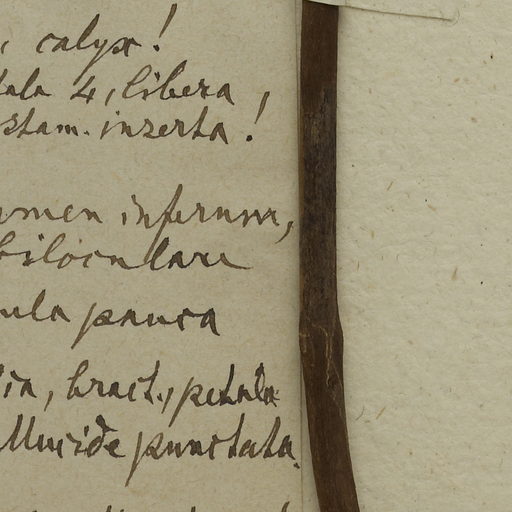 , calyx!
tala 4, libera,
stam. inserta!
rmen inferum,
biloculare
ula pauca
ia, bract., petala
llucide punctata.